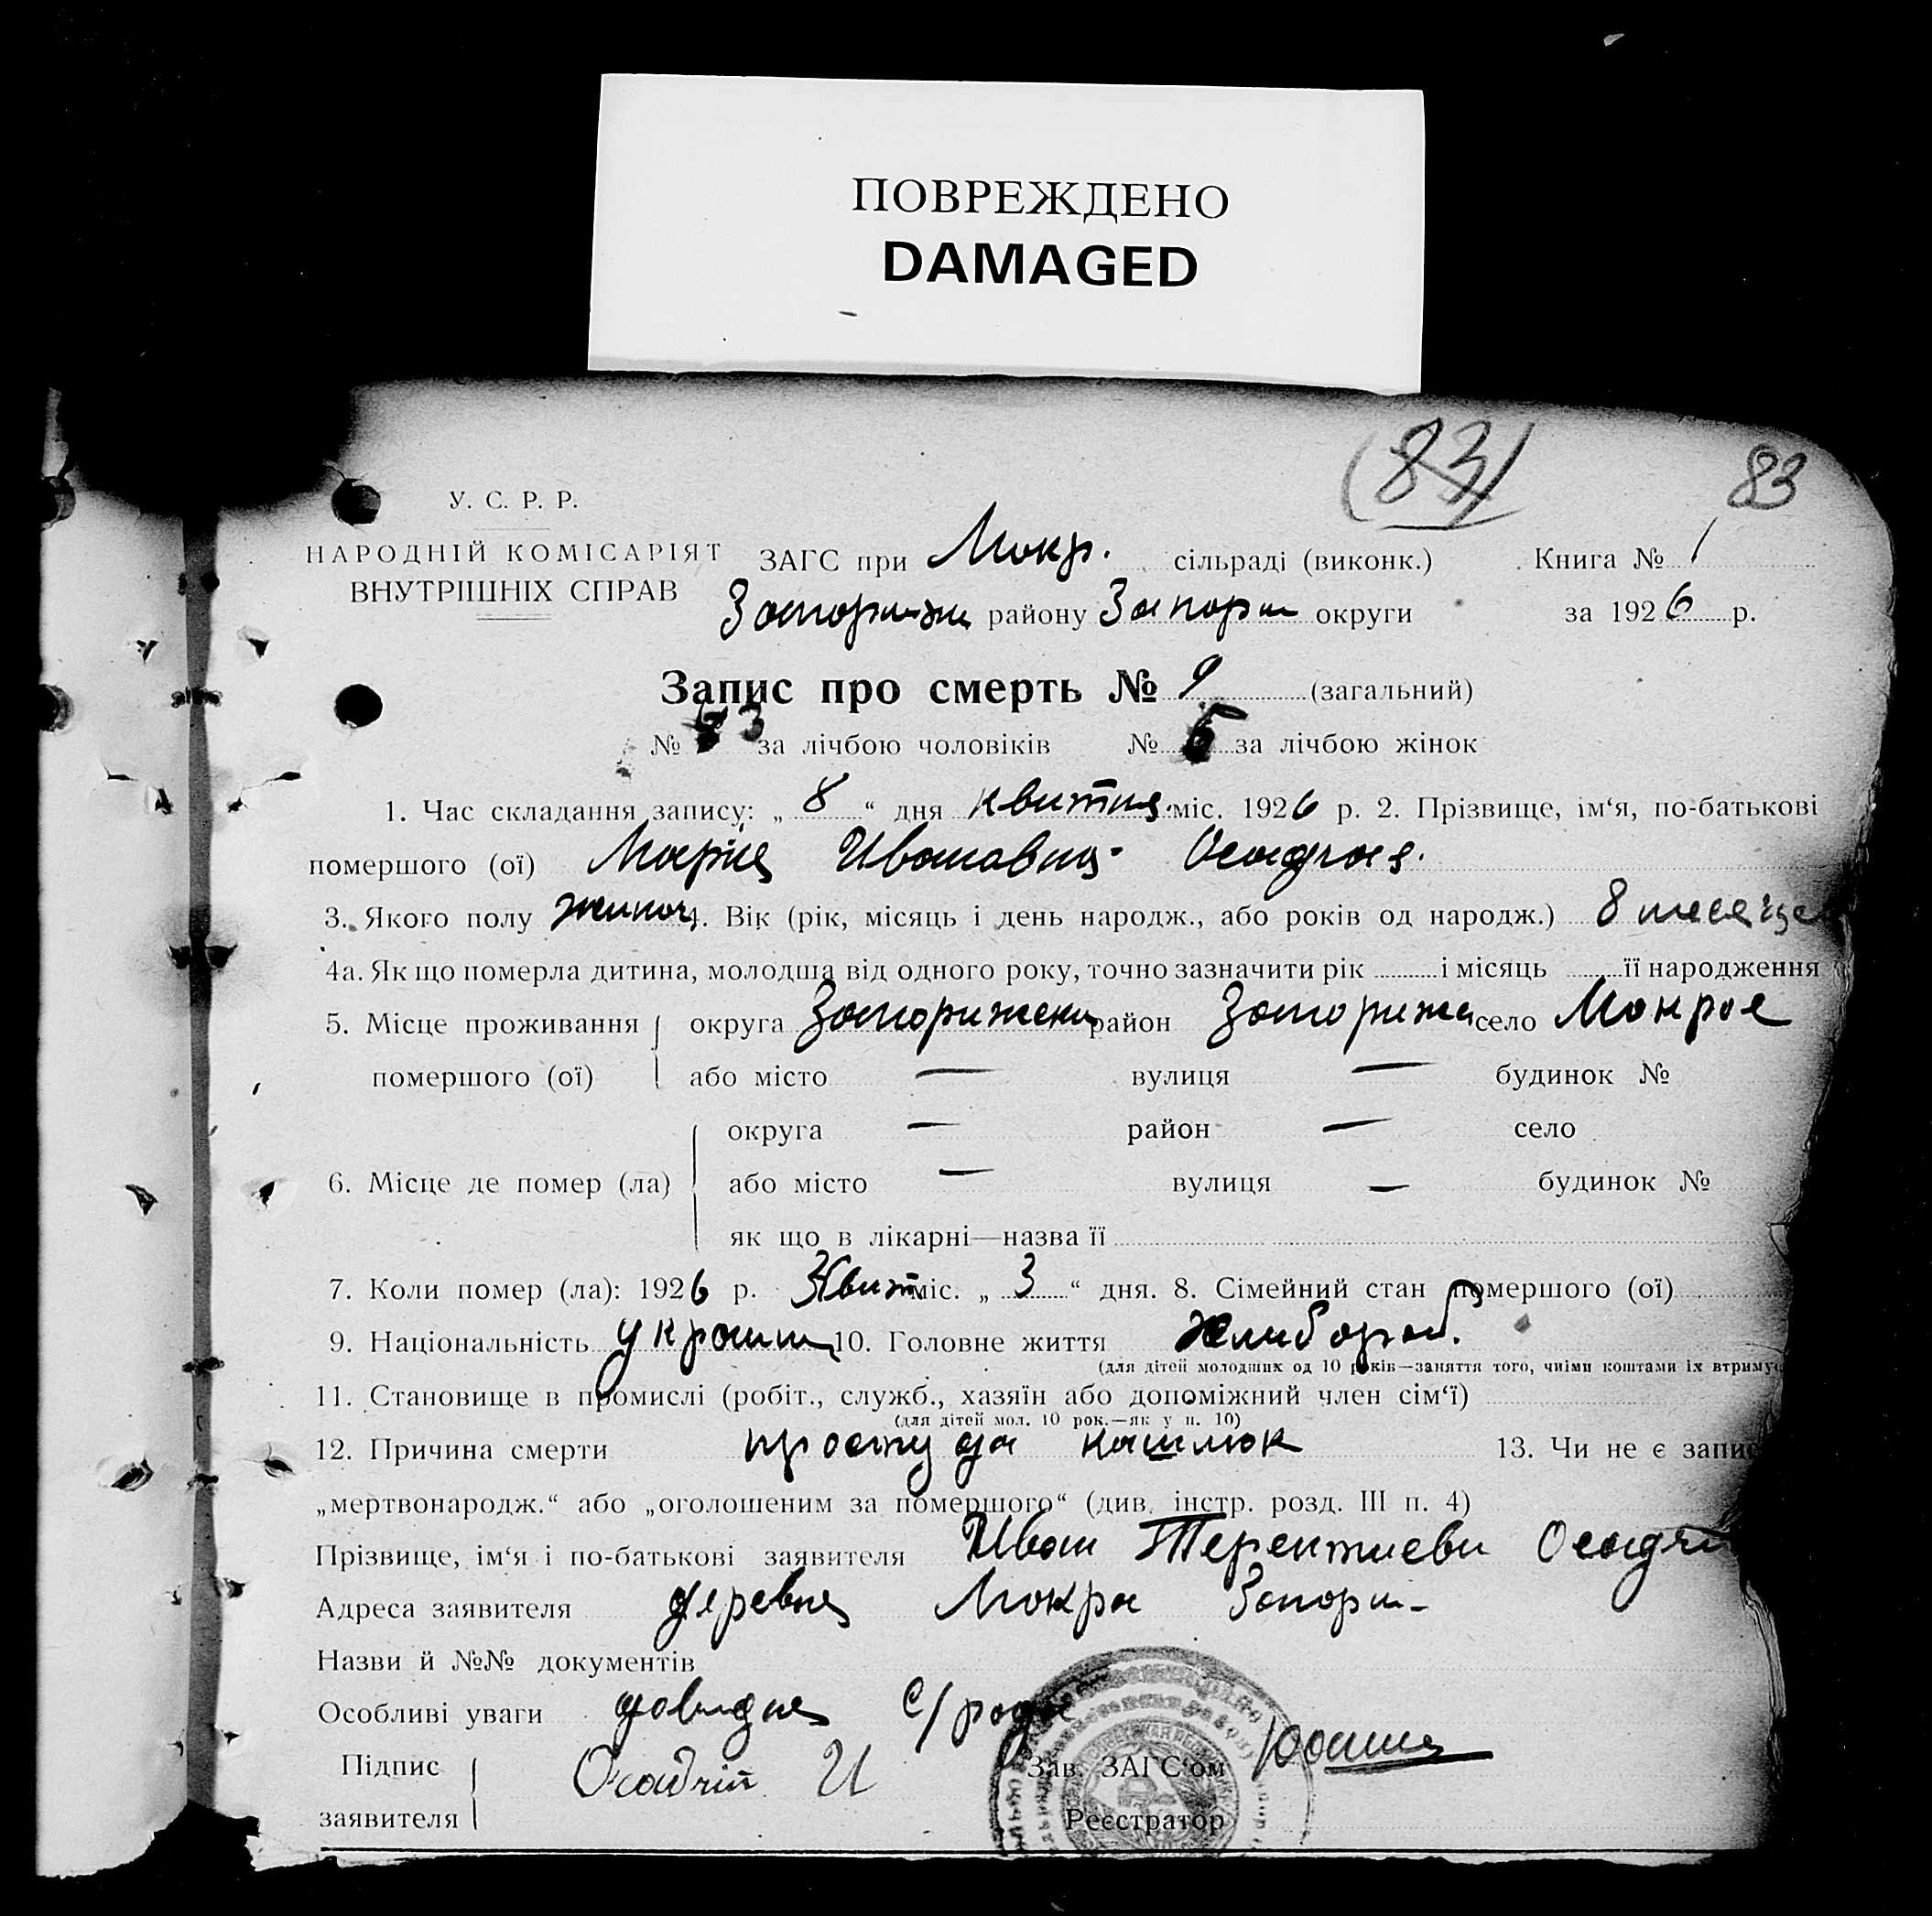 ПОВРЕЖДЕНО
DAMAGED
(83)
83
У. С. Р. Р.
НАРОДНІЙ КОМІСАРІЯТ
ВНУТРІШНІХ СПРАВ
ЗАГС при Мокр. сільраді (виконк.) Книга № 1
району Запориж округи за 1926 р.
Запис про смерть № 9 (загальний)
№ 3 за лічбою чоловіків № 6 за лічбою жінок
1. Час складання запису: „ 8 “ дня квитня міс. 1926 р. 2. Прізвище, ім‘я, по-батькові
помершого (ої) Марія Ивановна Осадчая.
3. Якого полу жиноч. 4. Вік (рік, місяць і день народж., або років од народж.) 8 месяцев
4а. Як що померла дитина, молодша від одного року, точно зазначити рік і місяць її народження
5. Місце проживання округа Запорижски район Запорижс село Мокрое
помершого (ої) або місто — вулиця — будинок №
округа — район — село
6. Місце де помер (ла) або місто — вулиця — будинок №
як що в лікарні—назва її
7. Коли помер (ла): 1926 р. Квит міс. „ 3 “ дня. 8. Сімейний стан помершого (ої)
9. Національність украин 10. Головне життя хлибороб.
(для дітей молодших од 10 років—заняття того, чиїми коштами їх втриму
11. Становище в промислі (робіт., служб., хазяїн або допоміжний член сім‘ї)
(для дітей мол. 10 рок.—як у п. 10)
12. Причина смерти простуда кашлюк 13. Чи не є запис
„мертвонародж.“ або „оголошеним за помершого“ (див. інстр. розд. III п. 4)
Прізвище, ім‘я і по-батькові заявителя Иван Терентиеви Осадчи
Адреса заявителя деревня Мокра Запориж-
Назви й №№ документів
Особливі уваги довидня С/ради
Підпис Осадчій И Зав. ЗАГС‘ом
заявителя Реєстратор